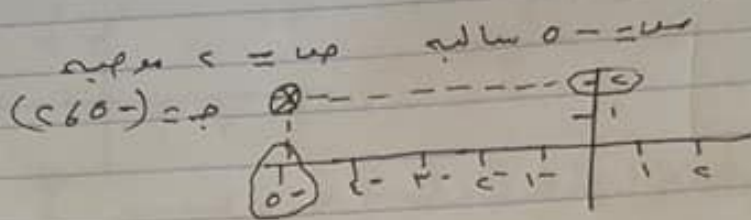 س = -٥ سالبه ص = ٢ موجبه
جـ = (-٥ و ٢)
٢
١
-٥ -٤ -٣ -٢ -١ ١ ٢